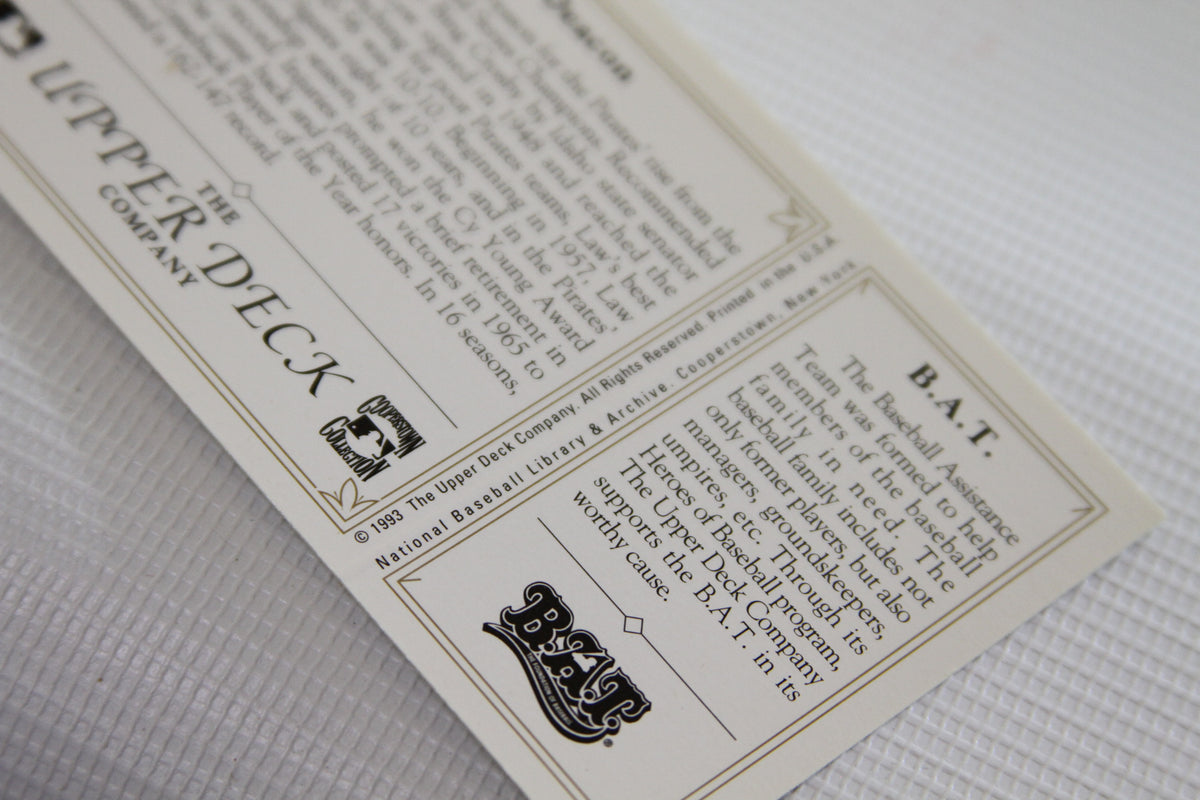 Deacon
the Pirates' rise from the
Champions. Recommended
by Idaho state senator
in 1948 and reached the
poor Pirates teams, Law's best
10-10. Beginning in 1957, Law
of 10 years, and in the Pirates'
season, he won the Cy Young Award
prompted a brief retirement in
back and posted 17 victories in 1965 to
Player of the Year honors. In 16 seasons,
a 162-147 record.
THE
UPPER DECK
COMPANY
COOPERSTOWN
COLLECTION
© 1993 The Upper Deck Company. All Rights Reserved. Printed in the U.S.A.
National Baseball Library & Archive. Cooperstown, New York
B.A.T.
The Baseball Assistance
Team was formed to help
members of the baseball
family in need. The
baseball family includes not
only former players, but also
managers, groundskeepers,
umpires, etc. Through its
Heroes of Baseball program,
The Upper Deck Company
supports the B.A.T. in its
worthy cause.
B.A.T.
®